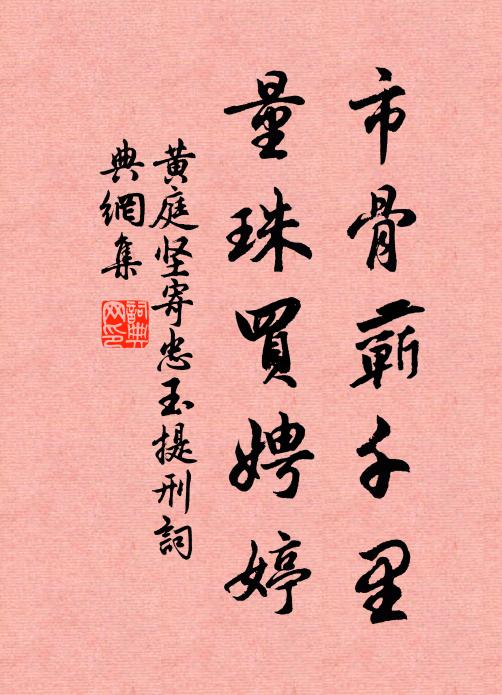 市骨蘄千里
量珠買娉婷
黄庭坚寄忠玉提刑詞
典網集
詞典
网印